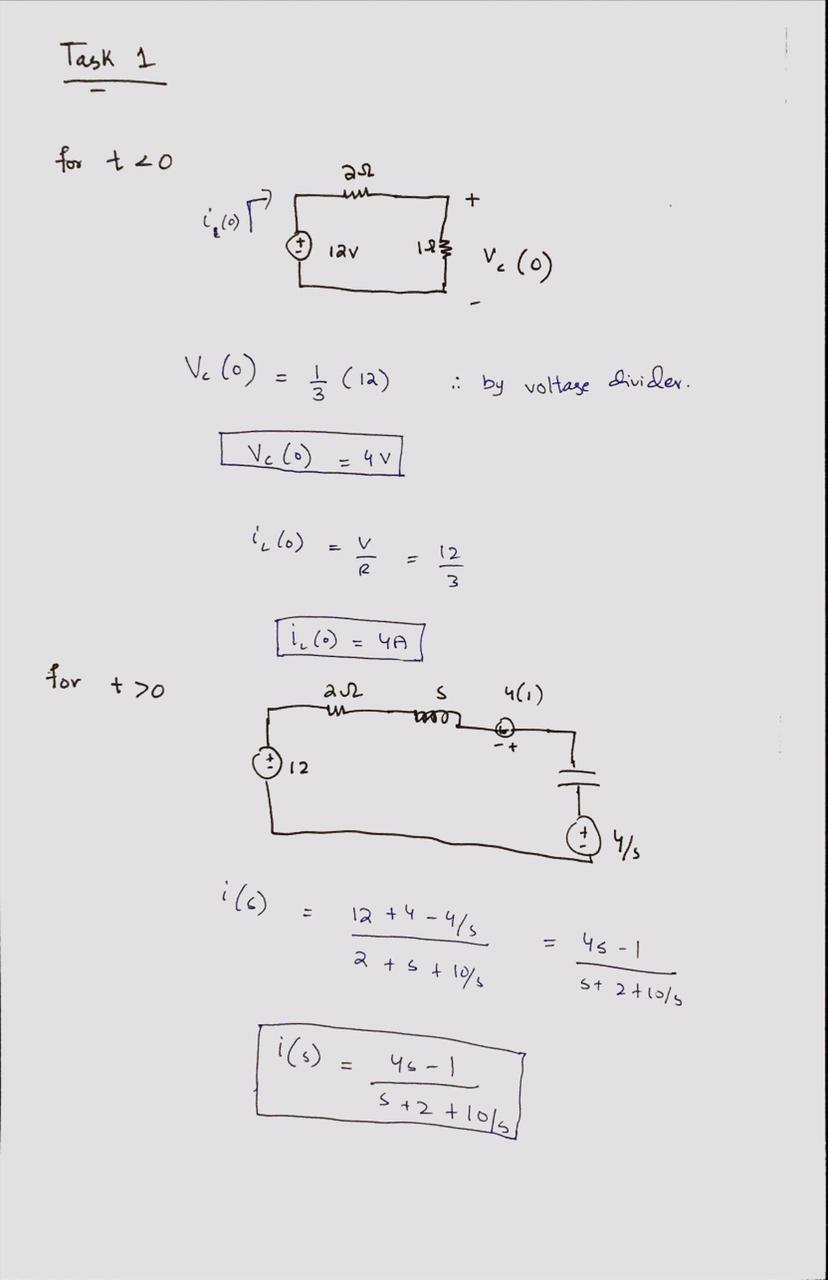 Task 1
for t <0
2Ω
i_L(0)
+
12V
1Ω
V_c (0)
-
V_c (0) = 1/3 (12) ∴ by voltage divider.
V_c (0) = 4V
i_L (0) = V/R = 12/3
i_L (0) = 4A
for t >0
2Ω s 4(1)
- +
12
4/s
i(s) = (12 + 4 - 4/s)/(2 + s + 10/s) = (4s - 1)/(s + 2 + 10/s)
i(s) = (4s - 1)/(s + 2 + 10/s)